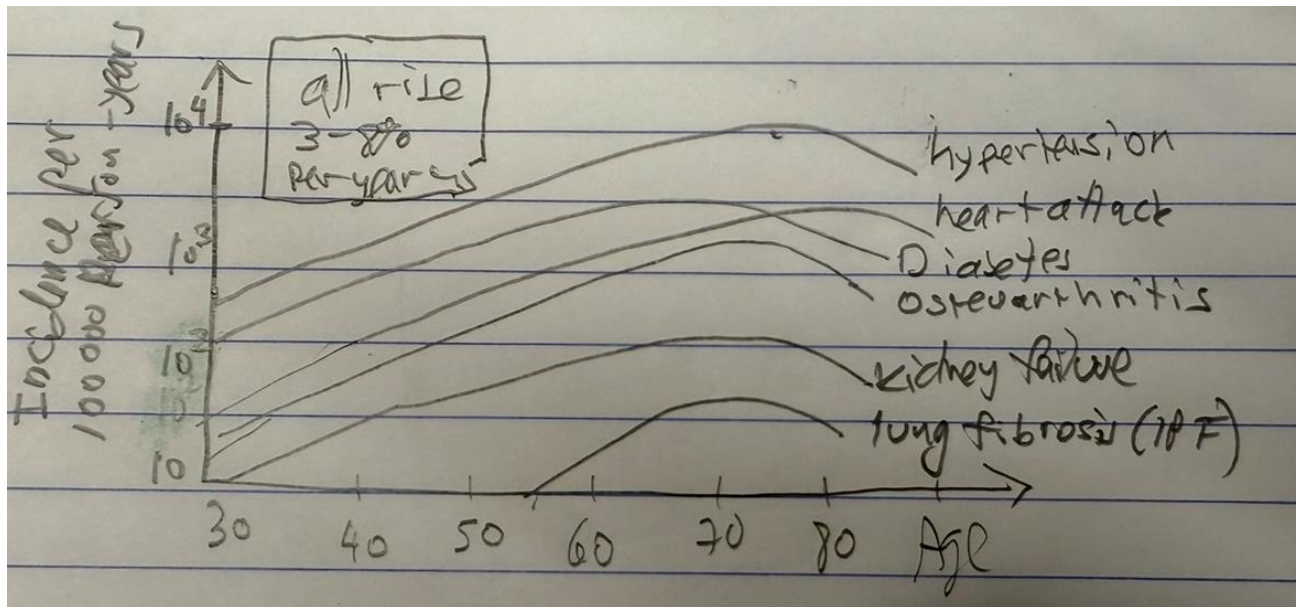 Incidence per
100 000 person-years
all rise
3-8%
per year
10⁴
10³
10²
10
hypertension
heart attack
Diabetes
Osteoarthritis
kidney failure
lung fibrosis (IPF)
30 40 50 60 70 80 Age